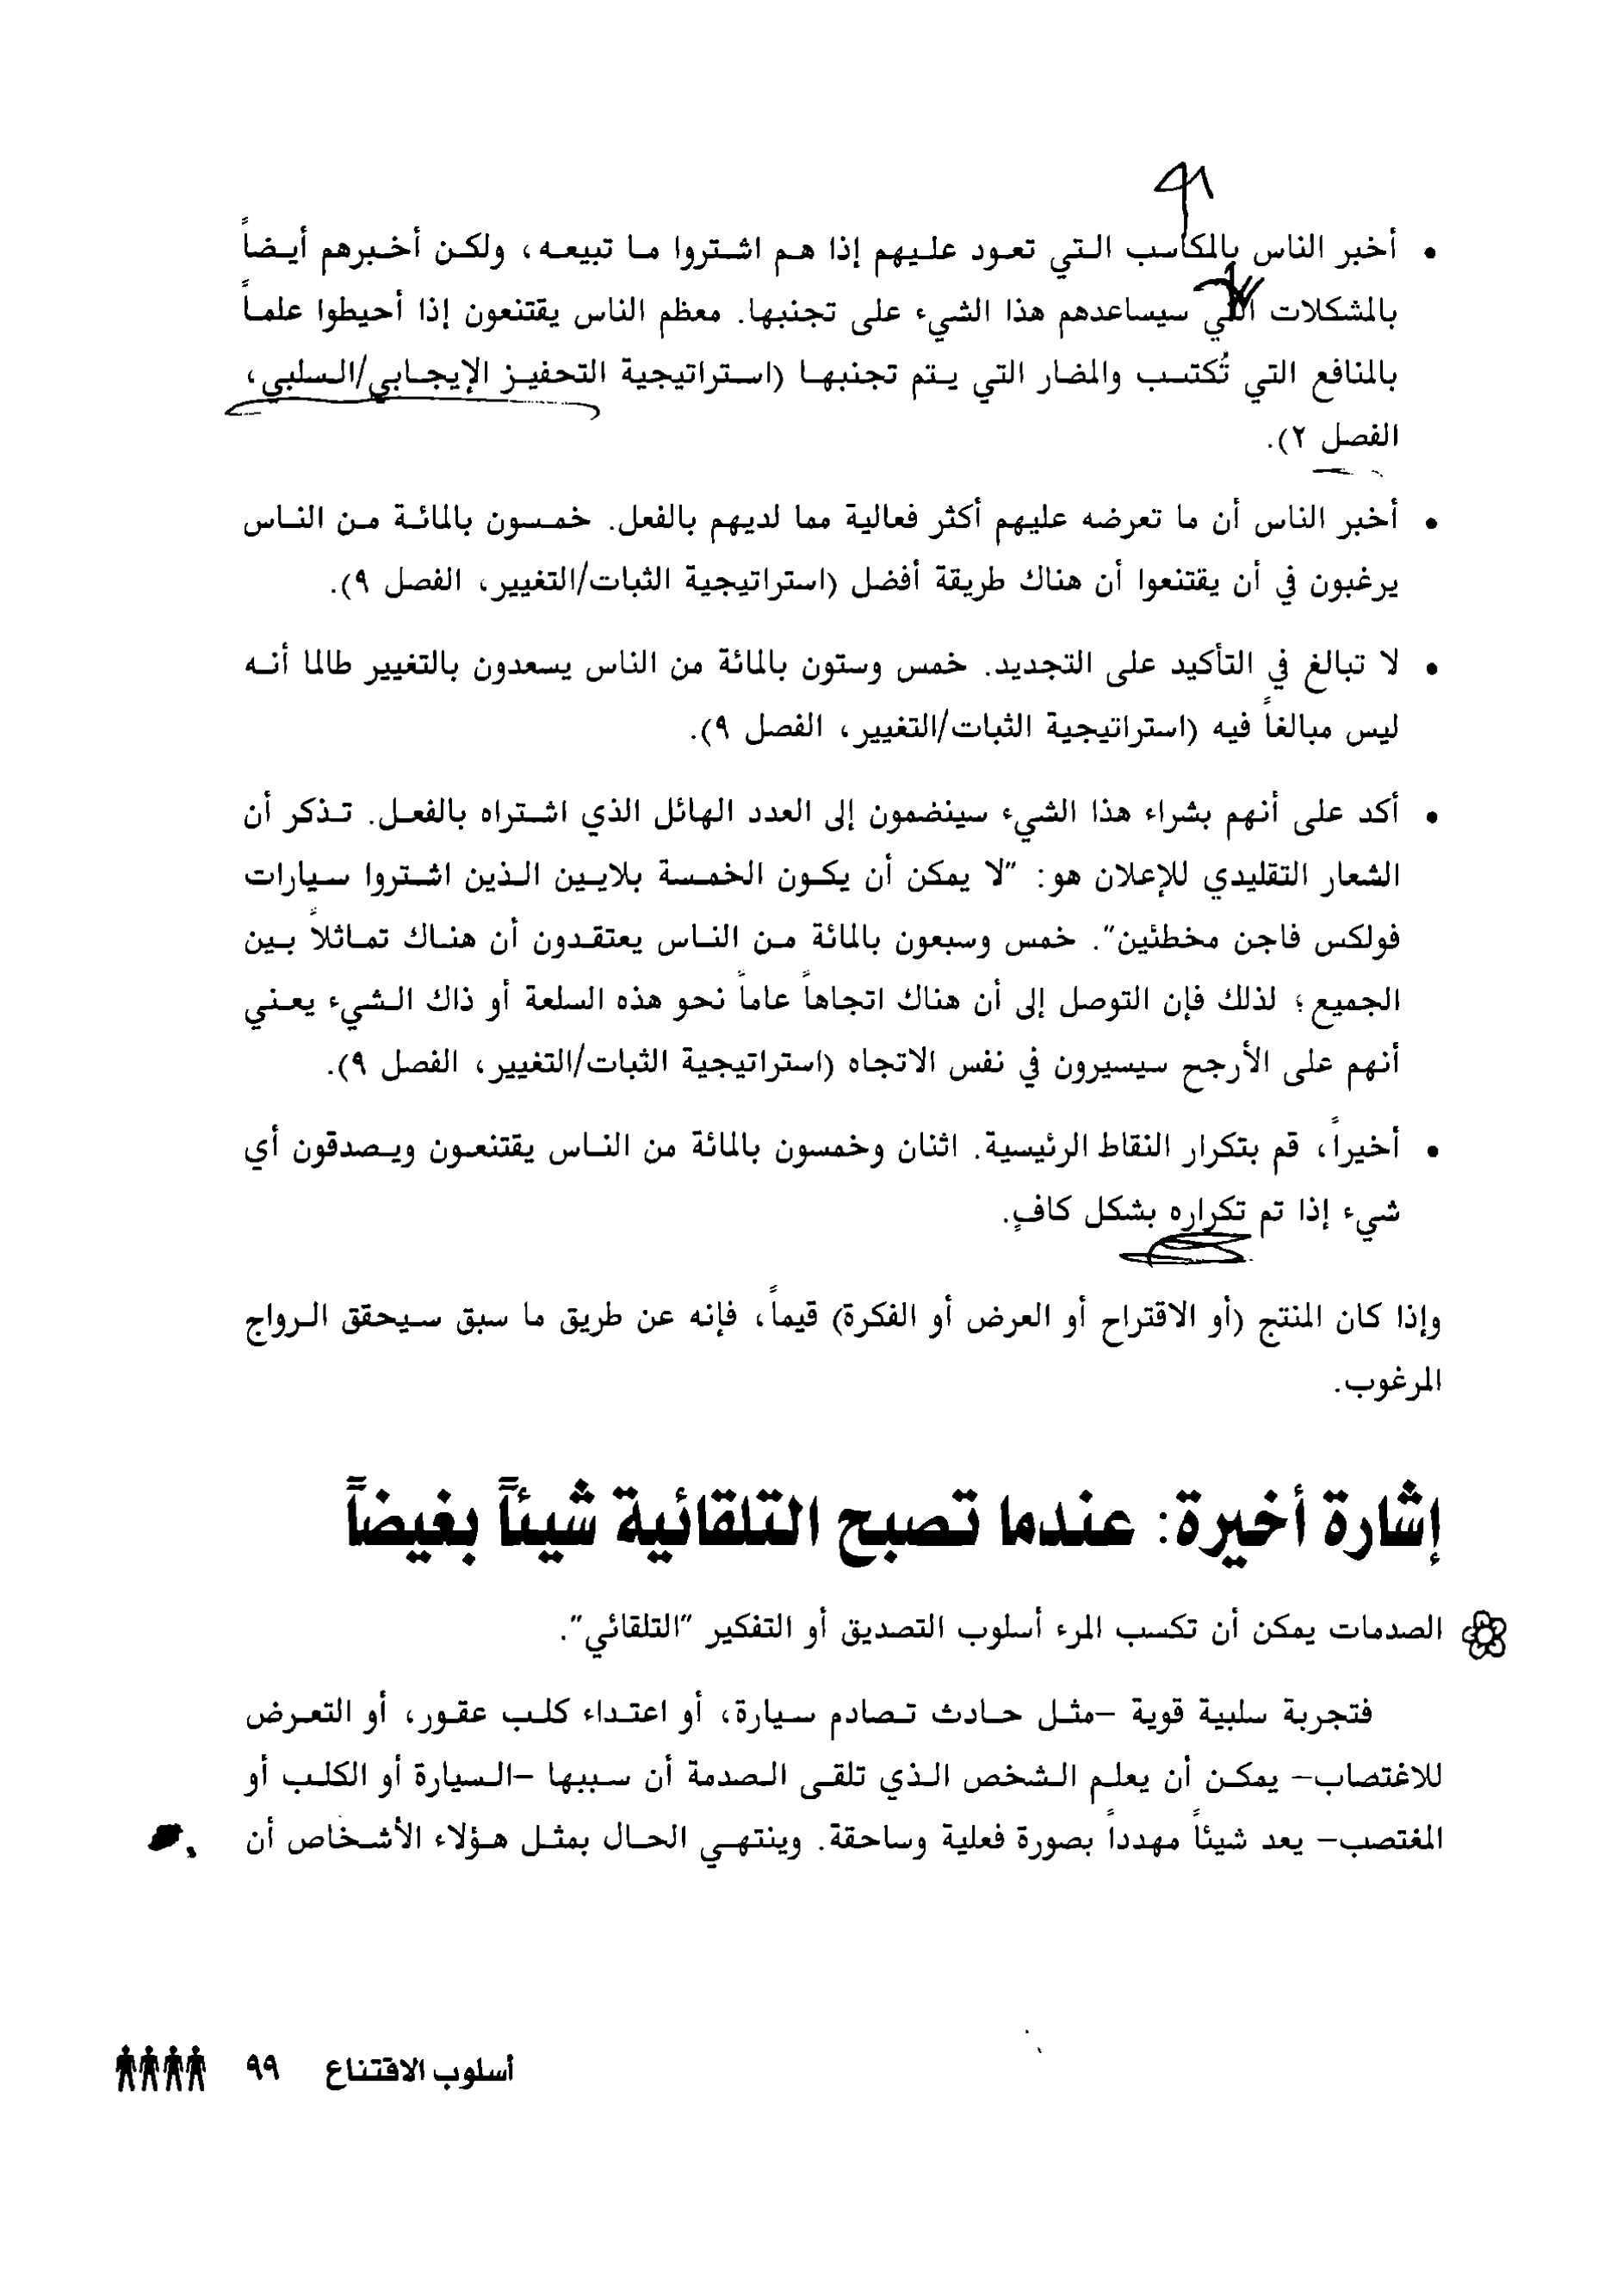 • أخبر الناس بالمكاسب التي تعود عليهم إذا هم اشتروا ما تبيعه، ولكن أخبرهم أيضاً
بالمشكلات التي سيساعدهم هذا الشيء على تجنبها. معظم الناس يقتنعون إذا أحيطوا علماً
بالمنافع التي تُكتسب والمضار التي يتم تجنبها (استراتيجية التحفيز الإيجابي/السلبي،
الفصل ٢).
• أخبر الناس أن ما تعرضه عليهم أكثر فعالية مما لديهم بالفعل. خمسون بالمائة من الناس
يرغبون في أن يقتنعوا أن هناك طريقة أفضل (استراتيجية الثبات/التغيير، الفصل ٩).
• لا تبالغ في التأكيد على التجديد. خمس وستون بالمائة من الناس يسعدون بالتغيير طالما أنه
ليس مبالغاً فيه (استراتيجية الثبات/التغيير، الفصل ٩).
• أكد على أنهم بشراء هذا الشيء سينضمون إلى العدد الهائل الذي اشتراه بالفعل. تذكر أن
الشعار التقليدي للإعلان هو: "لا يمكن أن يكون الخمسة بلايين الذين اشتروا سيارات
فولكس فاجن مخطئين". خمس وسبعون بالمائة من الناس يعتقدون أن هناك تماثلاً بين
الجميع؛ لذلك فإن التوصل إلى أن هناك اتجاهاً عاماً نحو هذه السلعة أو ذاك الشيء يعني
أنهم على الأرجح سيسيرون في نفس الاتجاه (استراتيجية الثبات/التغيير، الفصل ٩).
• أخيراً، قم بتكرار النقاط الرئيسية. اثنان وخمسون بالمائة من الناس يقتنعون ويصدقون أي
شيء إذا تم تكراره بشكل كافٍ.
وإذا كان المنتج (أو الاقتراح أو العرض أو الفكرة) قيماً، فإنه عن طريق ما سبق سيحقق الرواج
المرغوب.
إشارة أخيرة: عندما تصبح التلقائية شيئاً بغيضاً
الصدمات يمكن أن تكسب المرء أسلوب التصديق أو التفكير "التلقائي".
فتجربة سلبية قوية –مثل حادث تصادم سيارة، أو اعتداء كلب عقور، أو التعرض
للاغتصاب– يمكن أن يعلم الشخص الذي تلقى الصدمة أن سببها –السيارة أو الكلب أو
المغتصب– يعد شيئاً مهدداً بصورة فعلية وساحقة. وينتهي الحال بمثل هؤلاء الأشخاص أن
أسلوب الاقتناع ٩٩